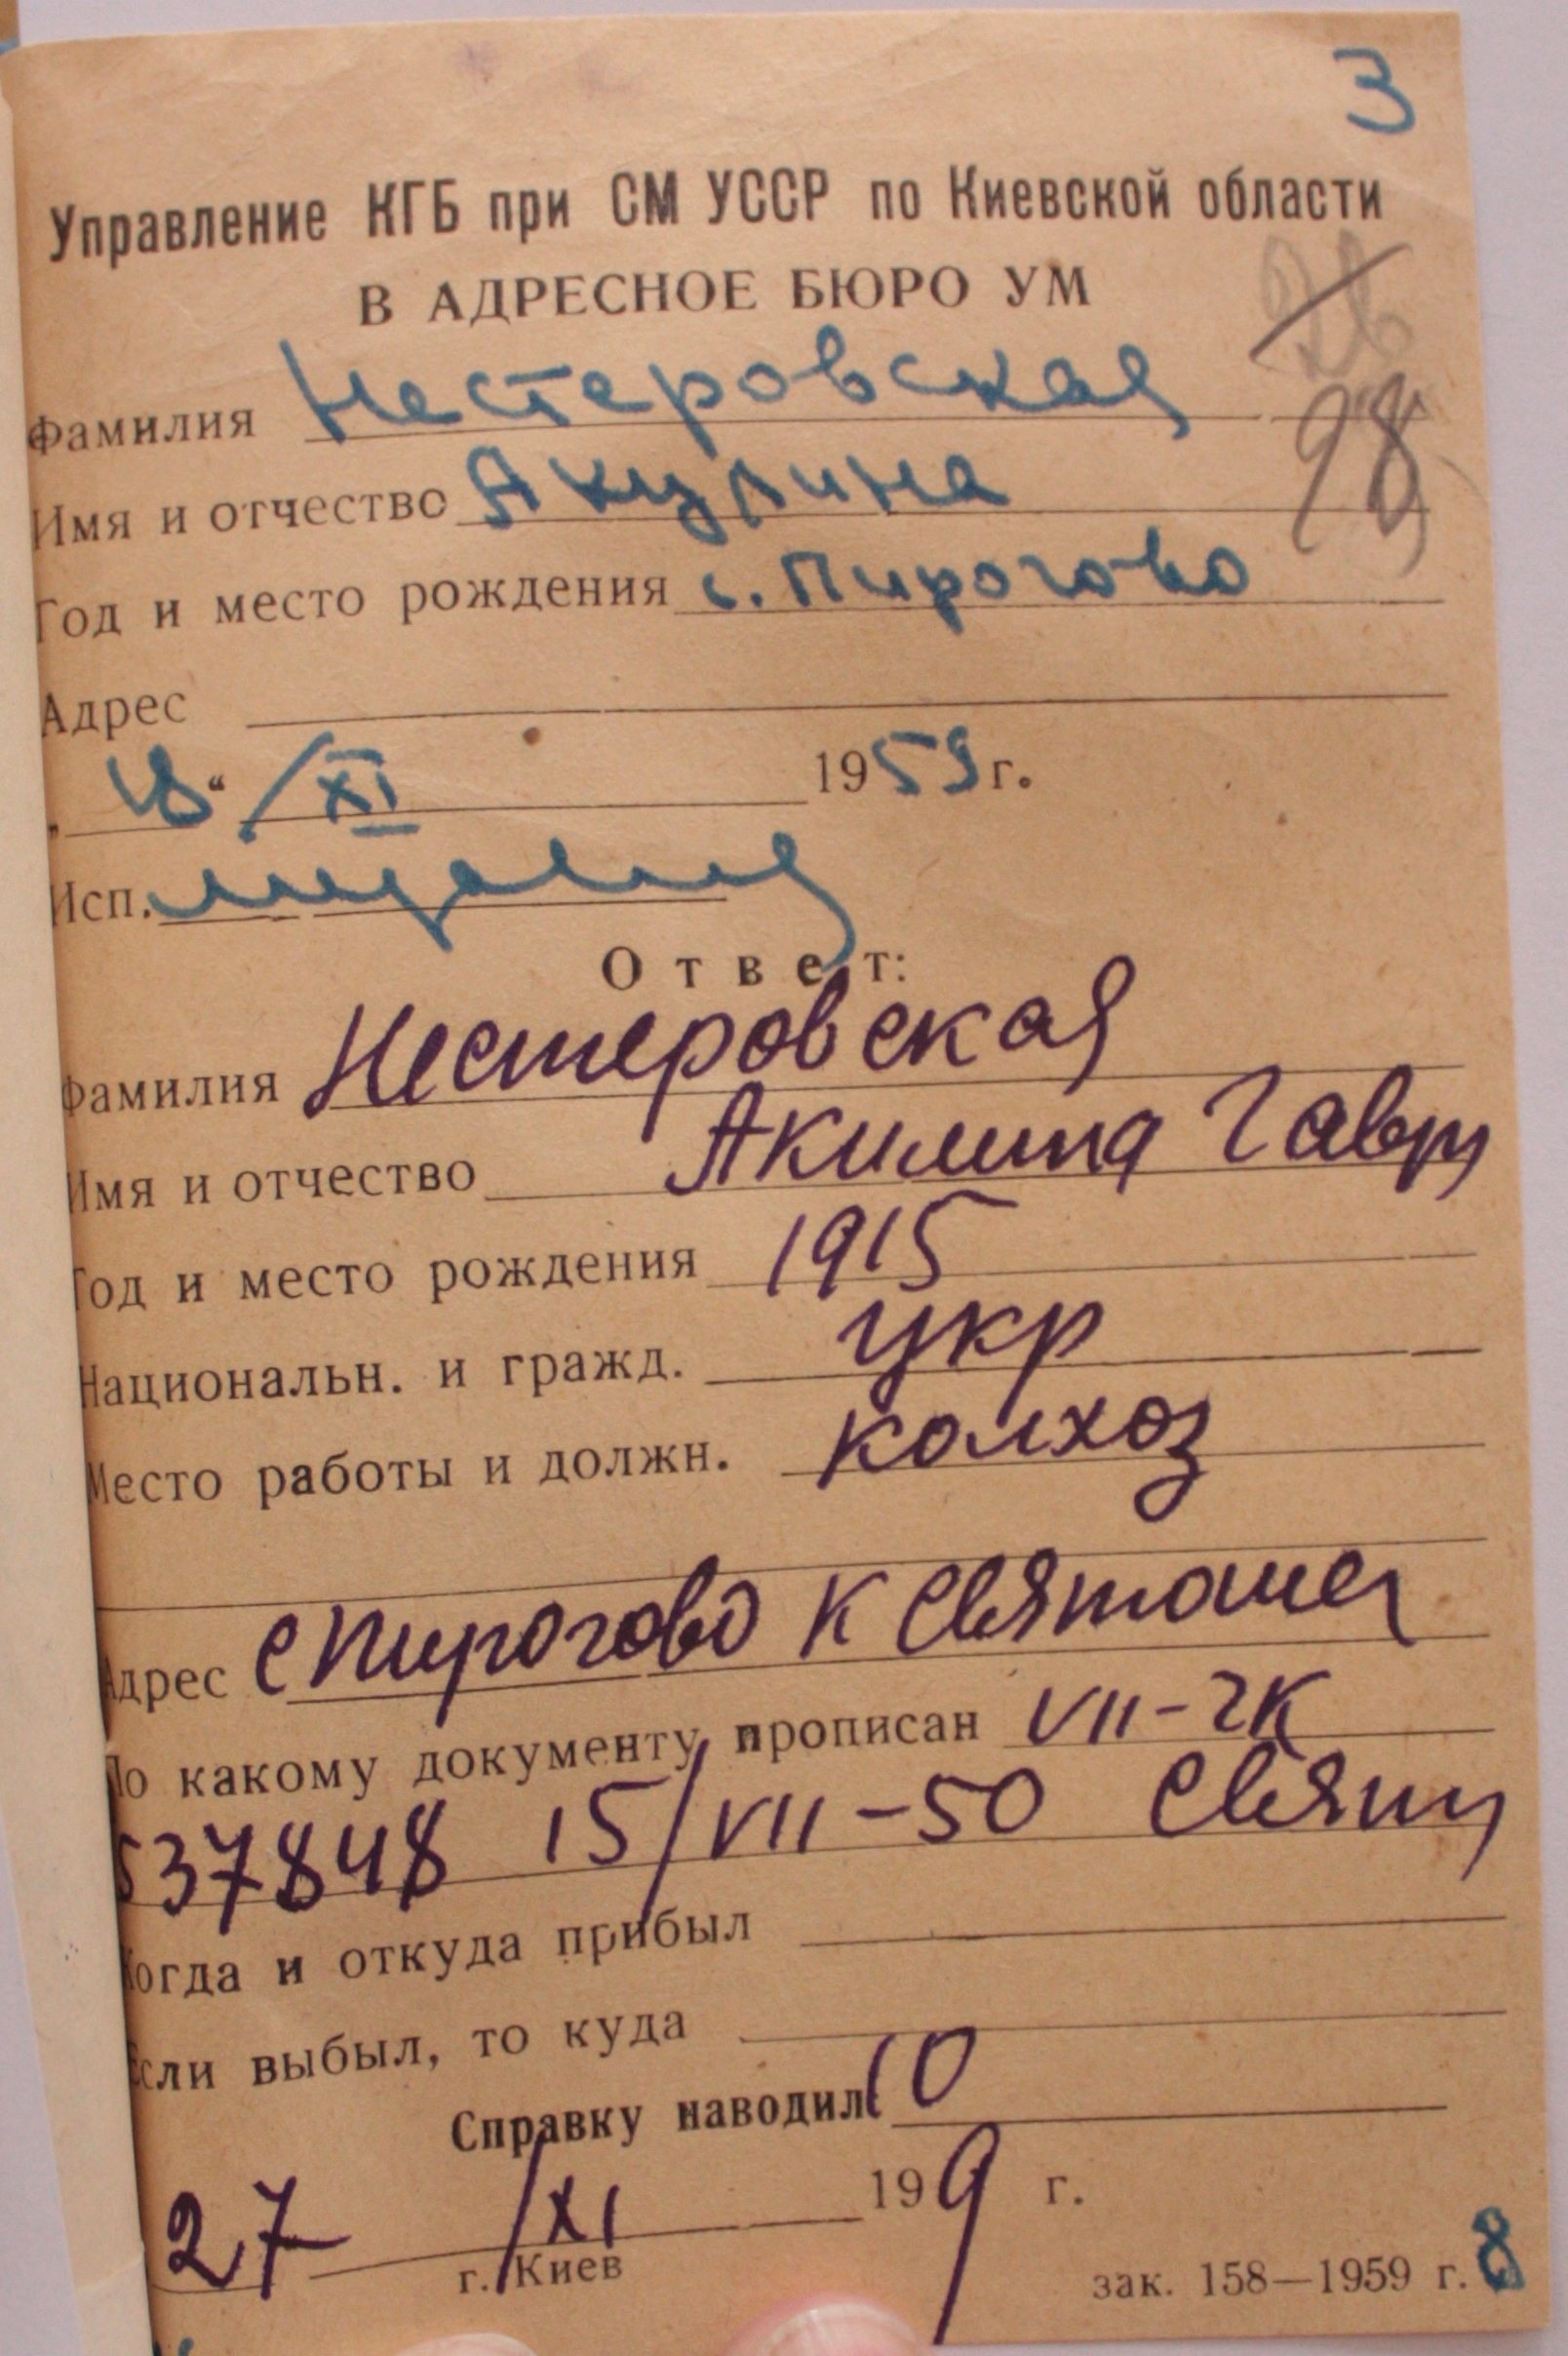 3
Управление КГБ при СМ УССР по Киевской области
В АДРЕСНОЕ БЮРО УМ
Фамилия Нестеровская
98
Имя и отчество Акулина
Год и место рождения с. Пирогово
Адрес
„18“ /XI 1959 г.
Исп.
Ответ:
Фамилия Нестеровская
Имя и отчество Акилина Гавр
Год и место рождения 1915
Национальн. и гражд. укр
Место работы и должн. колхоз
Адрес с Пирогово К Святошен
По какому документу прописан VII-ЧК
537848 15/VII-50 Свят
Когда и откуда прибыл
Если выбыл, то куда
Справку наводил: 10
27 /XI 199 г.
г. Киев
зак. 158—1959 г. 8